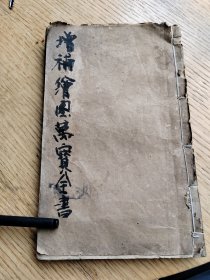 增補繪圖萬寶全書